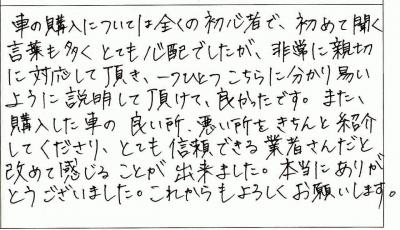 車の購入については全くの初心者で、初めて聞く
言葉も多くとても心配でしたが、非常に親切
に対応して頂き、一つひとつこちらに分かり易い
ように説明して頂けて、良かったです。また、
購入した車の良い所、悪い所をきちんと紹介
してくださり、とても信頼できる業者さんだと
改めて感じることが出来ました。本当にありが
とうございました。これからもよろしくお願いします。